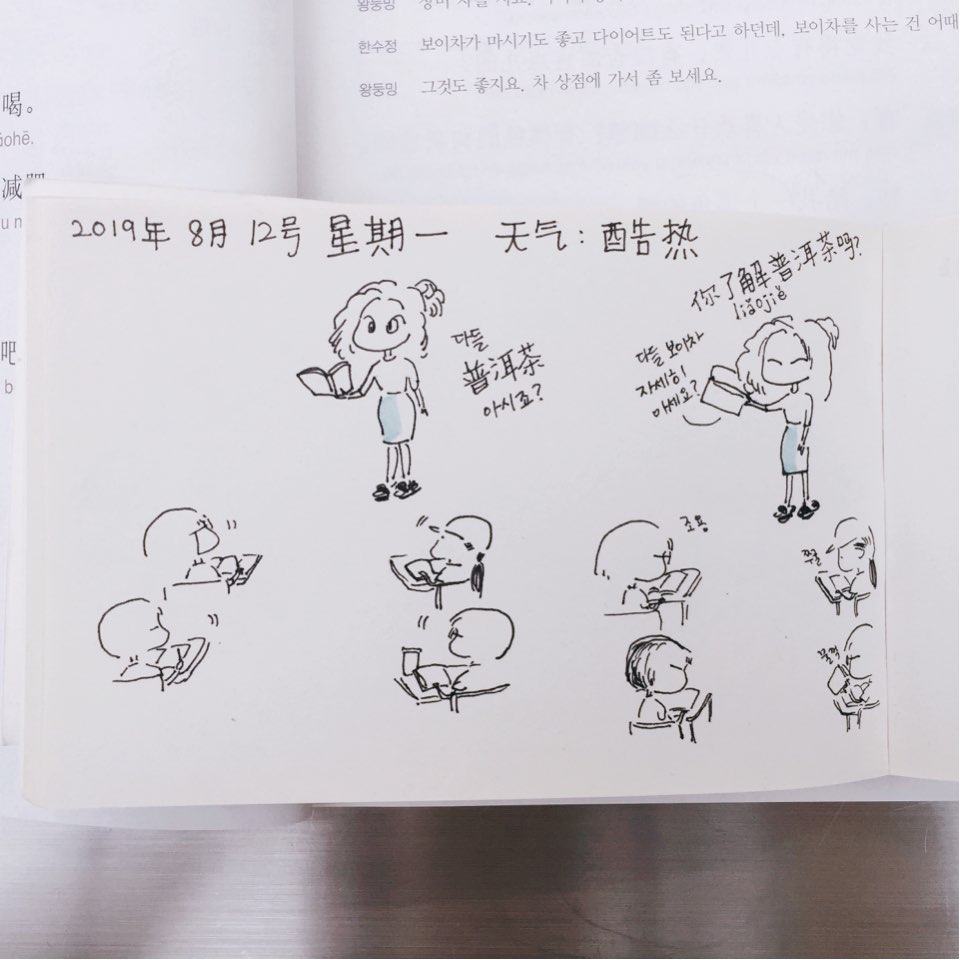 한수정 보이차가 마시기도 좋고 다이어트도 된다고 하던데, 보이차를 사는 건 어때
왕둥밍 그것도 좋지요. 차 상점에 가서 좀 보세요.
喝。
ohē.
减
un
吧
b
2019年 8月 12号 星期一 天气: 酷热
다들
普洱茶
아시죠?
你了解普洱茶吗?
liǎojiě
다들 보이차
자세히
아세요?
조용
쭈굴